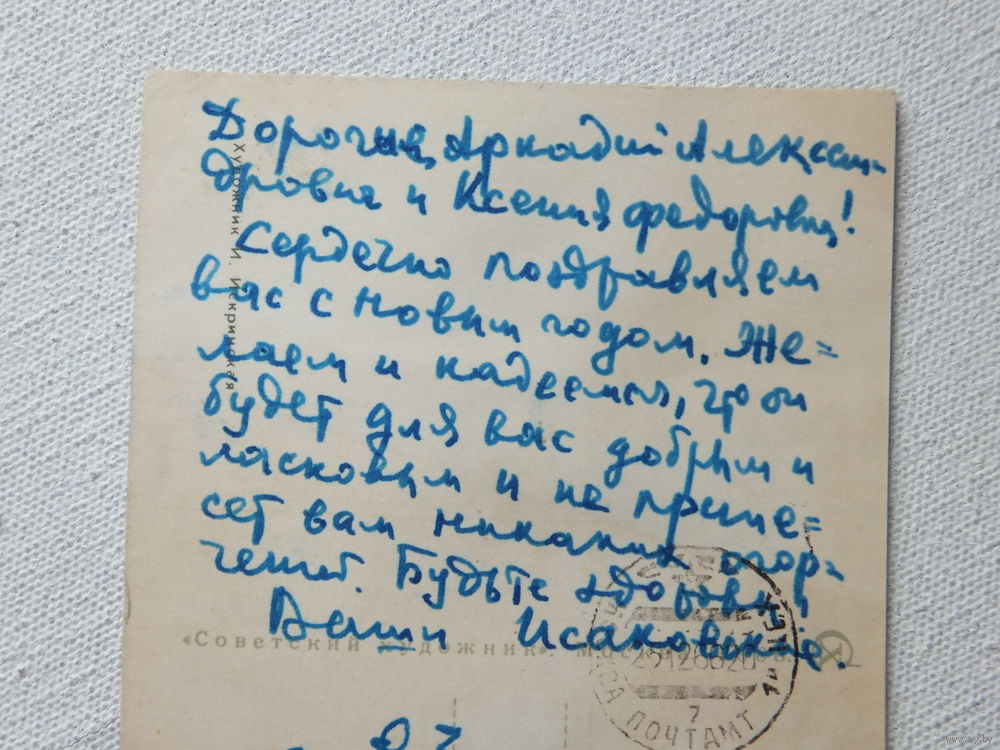 Дорогие Аркадий Алексан-
дрович и Ксения Федоровна!
Сердечно поздравляем
вас с новым годом. Же=
лаем и надеемся, что он
будет для вас добрым и
ласковым и не прине=
сет вам никаких огор-
чений. Будьте здоровы!
Ваши Исаковские.
Художник И. Искринская
«Советский художник». Москва
ПОЧТАМТ
7
www.ay.by